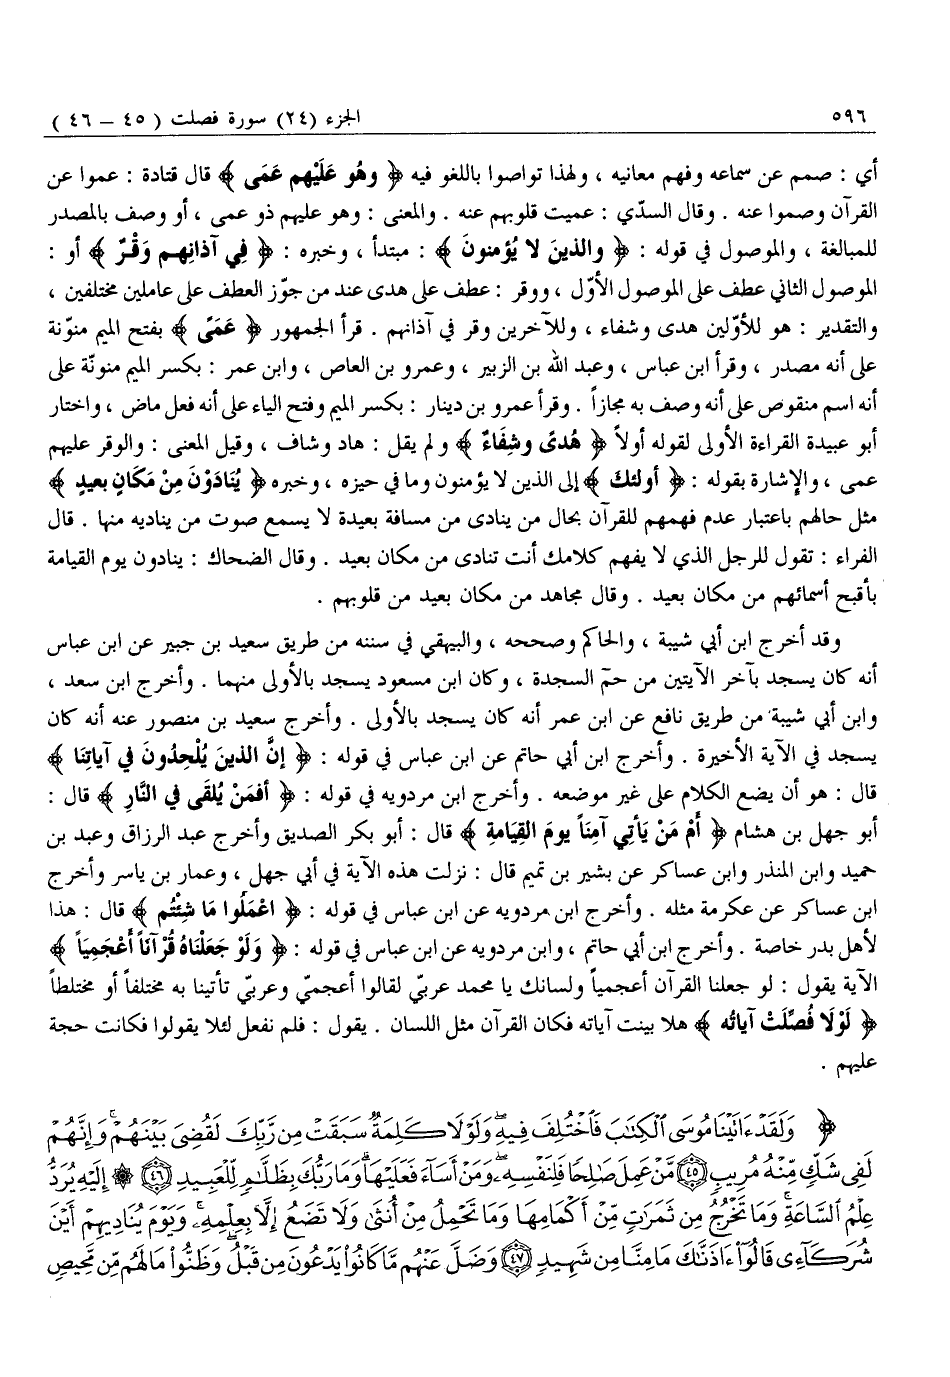 ٥٩٦ الجزء (٢٤) سورة فصلت ( ٤٥ – ٤٦ )
أي : صمم عن سماعه وفهم معانيه ، ولهذا تواصوا باللغو فيه ﴿ وهُو عَلَيْهم عَمَى ﴾ قال قتادة : عموا عن
القرآن وصموا عنه . وقال السدّي : عميت قلوبهم عنه . والمعنى : وهو عليهم ذو عمى ، أو وصف بالمصدر
للمبالغة ، والموصول في قوله : ﴿ والذينَ لا يُؤمنونَ ﴾ : مبتدأ ، وخبره : ﴿ فِي آذانِهـم وَقْـرٌ ﴾ أو :
الموصول الثاني عطف على الموصول الأوّل ، ووقر : عطف على هدى عند من جوّز العطف على عاملين مختلفين ،
والتقدير : هو للأوّلين هدى وشفاء ، وللآخرين وقر في آذانهم . قرأ الجمهور ﴿ عَمًى ﴾ بفتح الميم منوّنة
على أنه مصدر ، وقرأ ابن عباس ، وعبد الله بن الزبير ، وعمرو بن العاص ، وابن عمر : بكسر الميم منونّة على
أنه اسم منقوص على أنه وصف به مجازاً . وقرأ عمرو بن دينار : بكسر الميم وفتح الياء على أنه فعل ماض ، واختار
أبو عبيدة القراءة الأولى لقوله أولاً ﴿ هُدىً وشِفَاءٌ ﴾ ولم يقل : هاد وشاف ، وقيل المعنى : والوقر عليهم
عمى ، والإشارة بقوله : ﴿ أولئكَ ﴾ إلى الذين لا يؤمنون وما في حيزه ، وخبره ﴿ يُنَادَوْنَ مِنْ مَكَانٍ بعيدٍ ﴾
مثل حالهم باعتبار عدم فهمهم للقرآن بحال من ينادى من مسافة بعيدة لا يسمع صوت من يناديه منها . قال
الفراء : تقول للرجل الذي لا يفهم كلامك أنت تنادى من مكان بعيد . وقال الضحاك : ينادون يوم القيامة
بأقبح أسمائهم من مكان بعيد . وقال مجاهد من مكان بعيد من قلوبهم .
وقد أخرج ابن أبي شيبة ، والحاكم وصححه ، والبيهقي في سننه من طريق سعيد بن جبير عن ابن عباس
أنه كان يسجد بآخر الآيتين من حمّ السجدة ، وكان ابن مسعود يسجد بالأولى منهما . وأخرج ابن سعد ،
وابن أبي شيبة من طريق نافع عن ابن عمر أنه كان يسجد بالأولى . وأخرج سعيد بن منصور عنه أنه كان
يسجد في الآية الأخيرة . وأخرج ابن أبي حاتم عن ابن عباس في قوله : ﴿ إنَّ الذينَ يُلْحِدُونَ في آياتِنَا ﴾
قال : هو أن يضع الكلام على غير موضعه . وأخرج ابن مردويه في قوله : ﴿ أفمَنْ يُلقَى في النَّارِ ﴾ قال :
أبو جهل بن هشام ﴿ أَمْ مَنْ يَأتي آمِنَاً يومَ القِيَامةِ ﴾ قال : أبو بكر الصديق وأخرج عبد الرزاق وعبد بن
حميد وابن المنذر وابن عساكر عن بشير بن تميم قال : نزلت هذه الآية في أبي جهل ، وعمار بن ياسر وأخرج
ابن عساكر عن عكرمة مثله . وأخرج ابن مردويه عن ابن عباس في قوله : ﴿ اعْمَلُوا مَا شِئْتُم ﴾ قال : هذا
لأهل بدر خاصة . وأخرج ابن أبي حاتم ، وابن مردويه عن ابن عباس في قوله : ﴿ وَلَوْ جَعَلْنَاهُ قُرْآنَاً أعْجَمِياً ﴾
الآية يقول : لو جعلنا القرآن أعجمياً ولسانك يا محمد عربيّ لقالوا أعجميّ وعربيّ تأتينا به مختلفاً أو مختلطاً
﴿ لَوْلَا فُصِّلَتْ آياتُه ﴾ هلا بينت آياته فكان القرآن مثل اللسان . يقول : فلم نفعل لئلا يقولوا فكانت حجة
عليهم .
﴿ وَلَقَدْ ءَاتَيْنَا مُوسَى ٱلْكِتَٰبَ فَٱخْتُلِفَ فِيهِ ۗ وَلَوْلَا كَلِمَةٌ سَبَقَتْ مِن رَّبِّكَ لَقُضِيَ بَيْنَهُمْ ۚ وَإِنَّهُمْ
لَفِى شَكٍّ مِّنْهُ مُرِيبٍ ٤٥ مَّنْ عَمِلَ صَٰلِحًا فَلِنَفْسِهِۦ ۖ وَمَنْ أَسَآءَ فَعَلَيْهَا ۗ وَمَا رَبُّكَ بِظَلَّٰمٍ لِّلْعَبِيدِ ٤٦ ۞ إِلَيْهِ يُرَدُّ
عِلْمُ ٱلسَّاعَةِ ۚ وَمَا تَخْرُجُ مِن ثَمَرَٰتٍ مِّنْ أَكْمَامِهَا وَمَا تَحْمِلُ مِنْ أُنثَىٰ وَلَا تَضَعُ إِلَّا بِعِلْمِهِۦ ۚ وَيَوْمَ يُنَادِيهِمْ أَيْنَ
شُرَكَآءِى قَالُوٓاْ ءَاذَنَّٰكَ مَا مِنَّا مِن شَهِيدٍ ٤٧ وَضَلَّ عَنْهُم مَّا كَانُواْ يَدْعُونَ مِن قَبْلُ ۖ وَظَنُّواْ مَا لَهُم مِّن مَّحِيصٍ